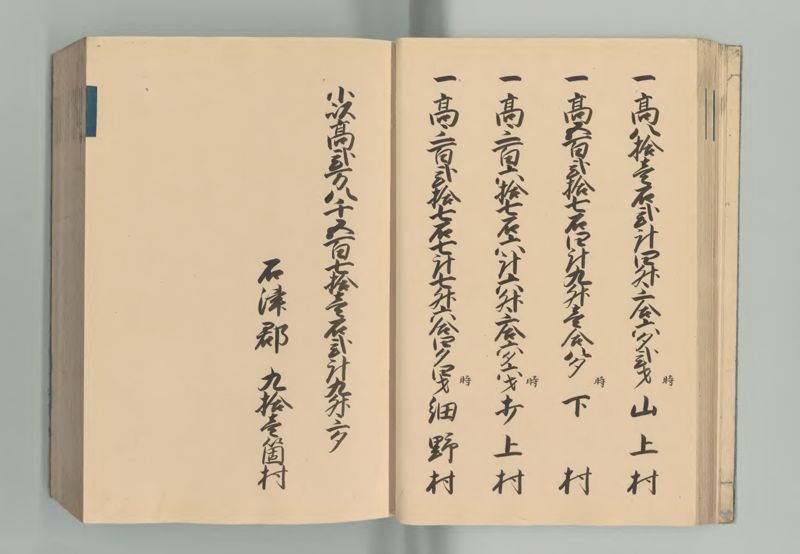 一高八拾壹石弐斗四升三合六夕弐才 時 山上村
一高五百弐拾七石四斗九升壹合八夕 時 下村
一高三百六拾七石六斗六升三合六夕六才 時 打上村
一高三百弐拾七石七斗七升六合四夕四才 時 細野村
小以高弐万八千五百七拾壹石弐斗九升三夕
石津郡 九拾壹箇村